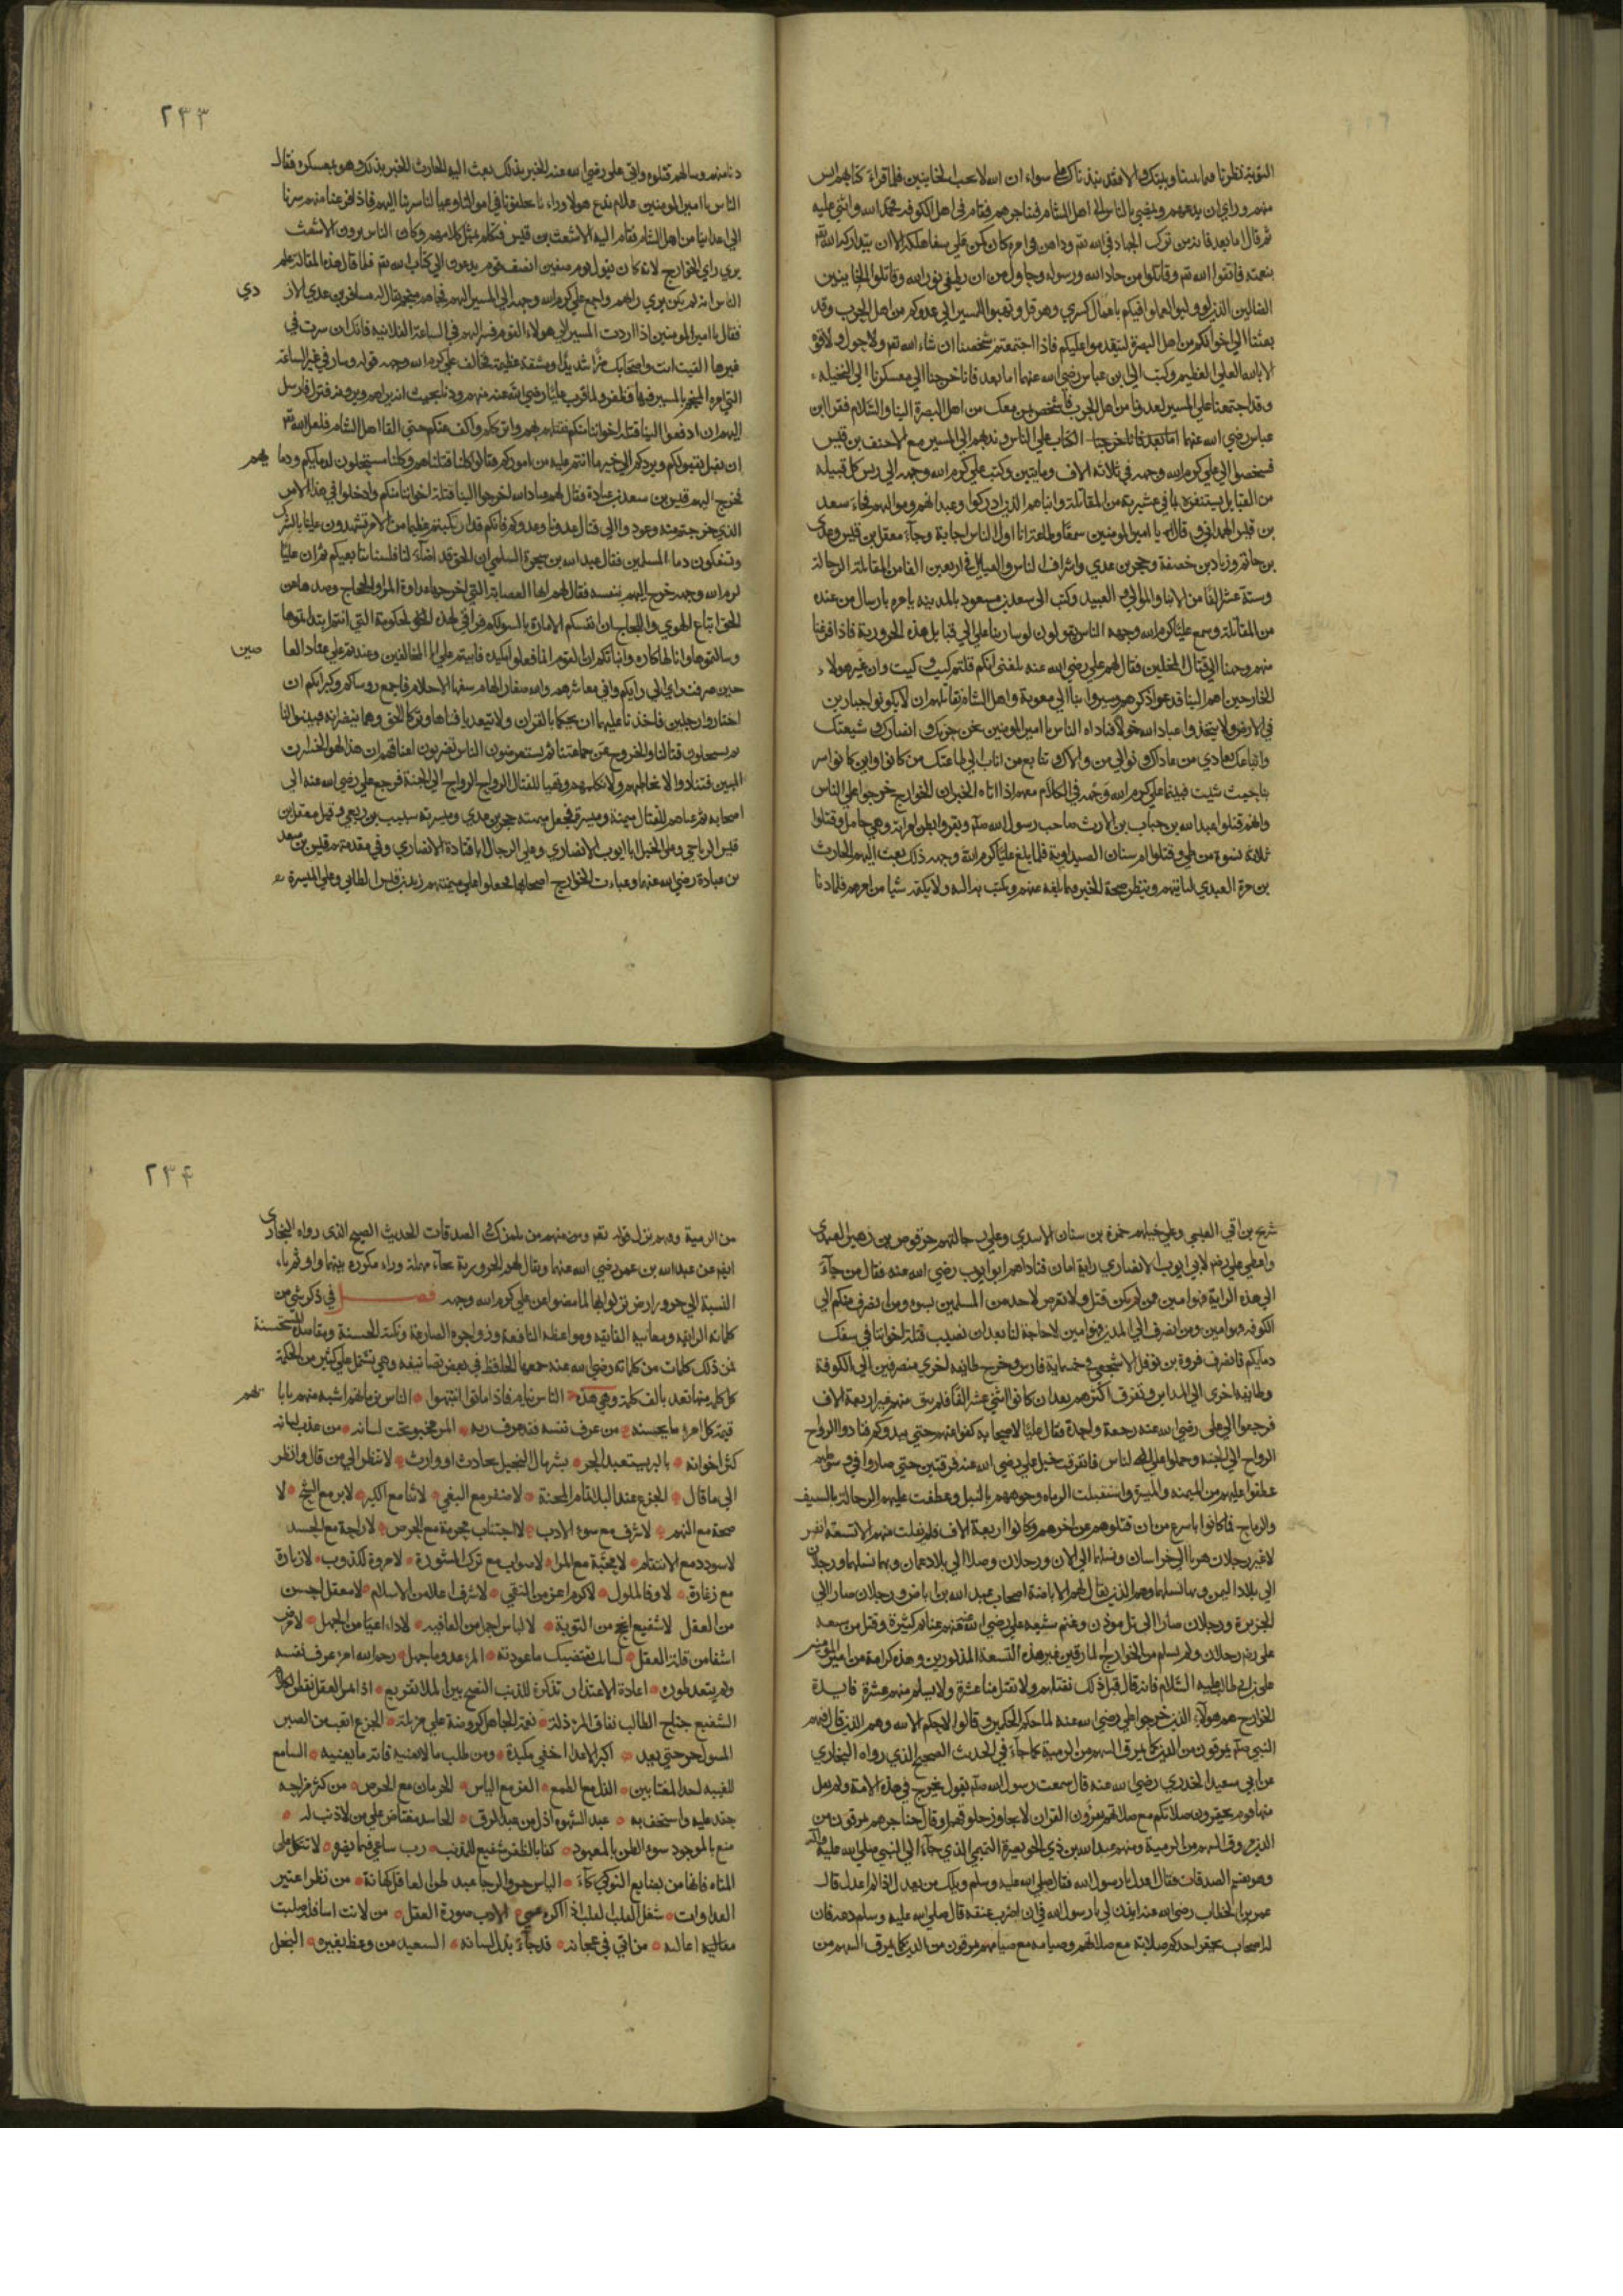 التوبة نظرنا فيما بيننا وبينك والا فقد نبذناك على سواء ان الله لا يحب الخاينين فلما قراء كتابهم ايس
منهم وراي ان يدعهم ويمضي بالناس الى اهل الشام فيناجزهم فقام في اهل الكوفه فحمد الله واثني عليه
ثم قال اما بعد فانه من ترك الجهاد في الله تع وداهن في امره كان علي شفا هلكه الا ان يتداركه الله تع
بنعمته فاتقوا الله تع وقاتلوا من حاد الله ورسوله وحاول من ان يطفي نور الله وقاتلوا الخاينين
الضالين الذين لو ولوا لعملوا فيكم باعمال كسري وهرقل وتهيوا للمسير الى عدوكم من اهل الحرب وقد
بعثنا الي اخوانكم من اهل البصرة ليقدموا عليكم فاذا اجتمعتم شخصنا ان شاء الله تع ولا حول ولا قوة
الا بالله العلي العظيم وكتب الي بن عباس رضي الله عنهما اما بعد فانا خرجنا الي معسكرنا الي النخيله
وقد اجتمعنا علي المسير لعدونا من اهل الحرب فاشخص بمن معك من اهل البصرة الينا والسلام فقرا ابن
عباس رضي الله عنهما الكتاب علي الناس وندبهم الي المسير مع الاحنف بن قيس
فشخصوا الي علي كرم الله وجهه في ثلاثة الاف ومايتين وكتب علي كرم الله وجهه الى ريس كل قبيلة
من القبايل يستنفره بما في عشيرته من المقاتلة وابناهم الذين ادركوا وعبدانهم ومواليهم فجاء سعد
بن قيس الهمداني وقال له يا امير المومنين سمعا وطاعة انا اول الناس اجابة وجاء معقل بن قيس وعدي
بن حاتم وزياد بن خصفة وحجر بن عدي واشراف الناس والقبايل في اربعين الفا من المقاتلة الرجالة
وستة عشر الفا من الابنا والموالي والعبيد وكتب الى سعد بن مسعود بالمدينه يامره بارسال من عنده
من المقاتلة وسمع علي كرم الله وجهه الناس يقولون لو سار بنا علي الي قبايل هذه الحرورية فاذا فرغنا
منهم وجهنا الي قتال المخلين فقال لهم علي رضي الله عنه بلغني انكم قلتم كيت وكيت وان غير هولاء
الخارجين اهم الينا فدعوا ذكرهم وسيروا بنا الي معوية واهل الشام نقاتلهم ان لا يكونوا جبارين
في الارض ولا يتخذوا عباد الله خولا فناداه الناس يا امير المومنين نحن حزبك وانصارك وشيعتك
واتباعك نعادي من عاداك ونوالي من والاك ونتابع من اناب الي طاعتك من كانوا واين كانوا سر
بنا حيث شيت فبينما علي كرم الله وجهه في الكلام معهم اذا اتاه الخبر ان الخوارج خرجوا علي الناس
وانهم قتلوا عبد الله بن خباب بن الارت صاحب رسول الله صلم وبقروا بطن امراته وهي حامل وقتلوا
ثلاثة نسوة من طي وقتلوا ام سنان الصيداوية فلما بلغ عليا كرم الله وجهه ذلك بعث اليهم الحارث
بن مرة العبدي لياتيهم وينظر صحة الخبر فيما بلغه عنهم ويكتب به اليه ولا يكتمه شيا من امرهم فلما دنا
٢٣٣
دنا منهم وسالهم قتلوه واتي علي رضي الله عنه الخبر بذلك وهو بمعسكره فقال
الناس يا امير المومنين علام ندع هولاء وراءنا يخلفونا في اموالنا وعيالنا سر بنا اليهم فاذا فرغنا منهم سرنا
الي اعداينا من اهل الشام فقام اليه الاشعث بن قيس فتكلم بمثل كلامهم وكان الناس يرون الاشعث
يري راي الخوارج لانه كان يقول يوم صفين انصفنا قوم يدعون الي كتاب الله تع فلما قال هذه المقالة علم
الناس انه لم يكن يري رايهم واجمع علي كرم الله وجهه الي المسير اليهم فجاءه منجم يقال له مسافر بن عدي الاز
دي
فقال يا امير المومنين اذا اردت المسير الي هولاء القوم فسر اليهم في الساعة الفلانيه فانك ان سرت في
غيرها لقيت انت واصحابك ضرا شديدا ومشقة عظيمة فخالف علي كرم الله وجهه قوله وسار في غير الساعة
التي امره المنجم بالمسير فيها فلما قرب علي رضي الله عنه منهم ودنا بحيث انه يراهم ويرونه نزل وارسل
اليهم ان ادفعوا الينا قتلة اخواننا منكم نقتلهم بهم واترككم واكف عنكم حتي القا اهل الشام فلعل الله تع
ان يقبل بقلوبكم ويردكم الي خير ما انتم عليه من اموركم فقالوا كلنا قتلناهم وكلنا مستحلون لدمايكم ودما
يهم
فخرج اليهم قيس بن سعد بن عبادة فقال لهم عباد الله اخرجوا الينا قتلة اخواننا منكم وادخلوا في هذا الامر
الذي خرجتم منه وعودوا الي قتال عدونا وعدوكم فانكم قد ارتكبتم عظيما من الامر تشهدون علينا بالشرك
وتسفكون دماء المسلمين فقال عبد الله بن سجرة السلمي ان الحق قد اضاء لنا فلسنا متابعيكم ثم ان عليا
كرم الله وجهه خرج اليهم بنفسه فقال لهم ايها العصابة التي اخرجها عداوة المراء واللجاج وصدها عن
الحق اتباع الهوي واللجاج ان انفسكم الامارة بالسو
وسالتموها وانا لها كاره وانباتكم ان القوم انما فعلوا مكيدة فابيتم علي ابا المخالفين وعندتم علي عناد العا
صين
حتي صرفت رايي الي رايكم واني معاشر هم والله صغار الهام سفها الاحلام فاجمع روساكم وكبراكم ان
اختاروا رجلين فاخذنا عليهما ان يحكما بالقران ولا يتعديا فتاها وتركا الحق وهما يبصرانه فبينوا لنا
بم تستحلون قتالنا والخروج عن جماعتنا ثم تستعرضون الناس تضربون اعناقهم ان هذا لهو الخسران
المبين فتنادوا الا تخاطبوهم ولا تكلموهم وتهيوا للقتال الرواح الرواح الي الجنة فرجع علي رضي الله عنه الى
اصحابه ثم عباهم للقتال ميمنة وميسرة فجعل علي ميمنته حجر بن عدي وميسرته شبيب بن ربعي وقيل معقل بن
قيس الرياحي وعلي الخيل ابا ايوب الانصاري وعلي الرجال ابا قتادة الانصاري وفي مقدمتهم قيس بن سعد
بن عبادة رضي الله عنهما وعباءت الخوارج اصحابها فجعلوا علي ميمنتهم زيد بن قيس الطائي وعلي الميسرة
شريح بن اوفي العبسي وعلي خيلهم حمزة بن سنان الاسدي وعلي رجالتهم حرقوص بن زهير السعدي
واعطي علي رضه لابي ايوب الانصاري راية امان فناداهم ابو ايوب رضي الله عنه فقال من جاء
الي هذه الراية فهو امين ومن لم يكن قتل ولا تعرض لاحد من المسلمين بسوء ومن انصرف منكم الي
الكوفه فهو امين ومن انصرف الي المداين فهو امين لا حاجة لنا بعد ان نصيب قتلة اخواننا في سفك
دمايكم فانصرف فروة بن نوفل الاشجعي في خمسماية فارس وخرج طايفه اخري منصرفين الي الكوفة
وطايفه اخرى الي المداين وتفرق اكثرهم بعد ان كانوا اثني عشر الفا فلم يبق منهم غير اربعة الاف
فرجعوا الي علي رضي الله عنه رجعة واحدة فقال علي لاصحابه كفوا عنهم حتي يبدوكم فتنادوا الرواح
الرواح الي الجنه وحملوا علي الناس فانفرقت خيل علي رضي الله عنه فرقتين حتي صاروا في وسطهم
عطفوا عليهم من الميمنه والميسرة واستقبلت الرماه وجوههم بالنبل وعطفت عليهم الرجالة بالسيف
والرماح فما كانوا باسرع من ان قتلوهم عن اخرهم وكانوا اربعة الاف فلم يفلت منهم الا تسعة انفر
لا غير رجلان هربا الي خراسان وبها نسلهما الي الان ورجلان وصلا الي بلاد عمان وبها نسلهما ورجلان
الي بلاد اليمن وبها نسلهما وهم الذين يقال لهم الاباضة اصحاب عبد الله بن اباض ورجلان صارا الي
الجزيرة ورجلان صارا الى تل موذن وغنم شيعة علي رضي الله عنه منهم غنايم كثيرة وقتل من شيعه
علي رضه رجلان ولم يسلم من الخوارج المارقين غير هذه التسعة المذكورين وهذه كرامة من امير المومنين
علي بن ابي طالب عليه السلام فانه قال قبل ذلك نقتلهم ولا يقتل منا عشرة ولا يسلم منهم عشرة فايدة
الخوارج هم هولاء الذين خرجوا علي علي رضي الله عنه لما حكم الحكمين وقالوا لا حكم الا لله وهم الذين قال فيهم
النبي صلم يمرقون من الدين كما يمرق السهم من الرمية كما جاء في الحديث الصحيح الذي رواه البخاري
عن ابي سعيد الخدري رضي الله عنه قال سمعت رسول الله صلم يقول يخرج في هذه الامة ولم يقل
منها قوم يحقرون صلاتكم مع صلاتهم يقرؤن القران لا يجاوز حلوقهم او قال حناجرهم يمرقون من
الدين مروق السهم من الرمية ومنهم عبد الله بن ذي الخويصرة التميمي الذي جاء الي النبي صلي الله عليه
وهو يقسم الصدقات فقال اعدل يا رسول الله فقال صلي الله عليه وسلم ويلك من يعدل اذا لم اعدل قال
عمر بن الخطاب رضي الله عنه ايذن لي يا رسول الله في ان اضرب عنقه قال صلي الله عليه وسلم دعه فان
له اصحاب يحقر احدكم صلاته مع صلاتهم وصيامه مع صيامهم يمرقون من الدين كما يمرق السهم من
٢٣٤
من الرمية وفيهم نزل قوله تع ومنهم من يلمزك في الصدقات الحديث الصحيح الذي رواه البخاري
ايضا عن عبد الله بن عمر رضي الله عنهما ويقال لهم الحرورية بحاء مهملة وراء مكررة بينهما واو ثم ياء
النسبة الي حرورا ارض نزلوا بها لما مضوا عن علي كرم الله وجهه فصل في ذكر شي من
كلماته الرايقه ومعانيه الفايقه ومواعظه النافعة وزواجره الصارمة ونكته الحسنة ومقاصده المستحسنة
فمن ذلك كلمات من كلماته رضي الله عنه جمعها الجاحظ في بعض تصانيفه وهي تشتمل علي كثير من الحكمة
كل كلمة منها تعد بالف كلمة وهي هذه الناس نيام فاذا ماتوا انتبهوا الناس بزمانهم اشبه منهم بابا
ئهم
قيمة كل امرء ما يحسنه من عرف نفسه فقد عرف ربه المرء مخبو تحت لسانه من عذب لسانه
كثر اخوانه بالبر يستعبد الحر بشر مال البخيل بحادث او وارث لا تنظر الي من قال وانظر
الى ما قال الجزع عند البلا تمام المحنة لا ظفر مع البغي لا ثنا مع الكبر لا بر مع الشح لا
صحة مع النهم لا شرف مع سوء الادب لا اجتناب محرم مع الحرص لا راحة مع الحسد
لا سودد مع الانتقام لا محبة مع المرا لا صواب مع ترك المشورة لا مروة لكذوب لا زيارة
مع زعارة لا وفا لملول لا كرم اعز من التقي لا شرف اعلا من الاسلام لا معقل احسن
من العقل لا شفيع انجح من التوبة لا لباس اجمل من العافيه لا داء اعيا من الجهل لا مرض
اضنا من قلة العقل لسانك يقتضيك ما عودته المرء عدو ما جهل رحم الله امرء عرف نفسه
ولم يتعد طوره اعادة الاعتذار تذكرة للذنب النصح بين الملا تقريع اذا تم العقل نقص الكلام
الشفيع جناح الطالب نفاق المرء ذلة نعمة الجاهل كروضة علي مزبلة الجزع اتعب من الصبر
المسول حر حتي يعد اكبر الاعدا اخفي مكيدة ومن طلب ما لا يعنيه فاته ما يعنيه السامع
للغيبه احد المغتابين الذل مع الطمع العز مع الياس الحرمان مع الحرص من كثر مزاحه
حقد عليه واستخف به عبد الشهوة اذل من عبد الرق الحاسد مغتاض علي من لا ذنب له
منع الموجود سوء الظن بالمعبود كفا بالظفر شفيع للمذنب رب ساعي فيما يضره لا تتكل علي
المناء فانها من بضايع النوكي الياس حر والرجا عبد ظن العاقل كهانة من نظر اعتبر
العداوات شغل القلب الادب صورة العقل من لانت اسافله صلبت
معاليه اعاليه من اتي في عجانه قل حياءه وبذا لسانه السعيد من وعظ بغيره البخل